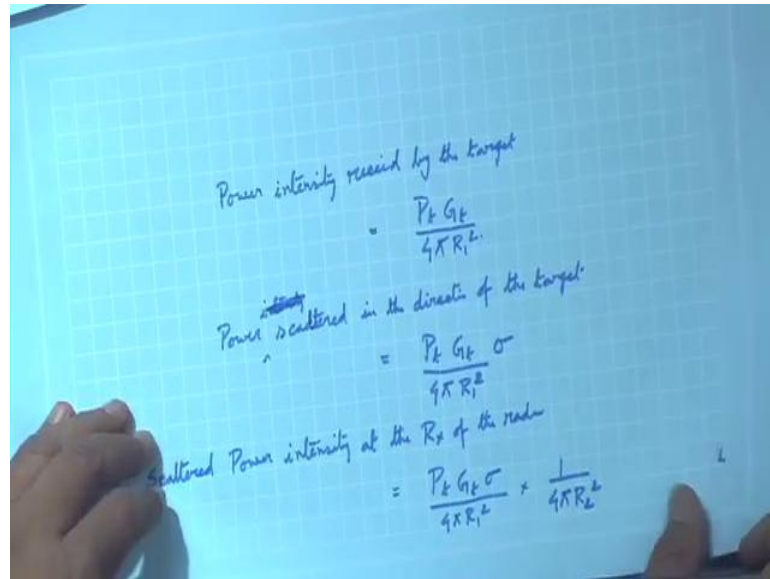 Power intensity receid by the target
= P_t G_t / 4π R_1^2.
Power scattered in the directn of the target.
= P_t G_t σ / 4π R_1^2
Scattered Power intensity at the Rx of the radar
= P_t G_t σ / 4π R_1^2 × 1 / 4π R_2^2